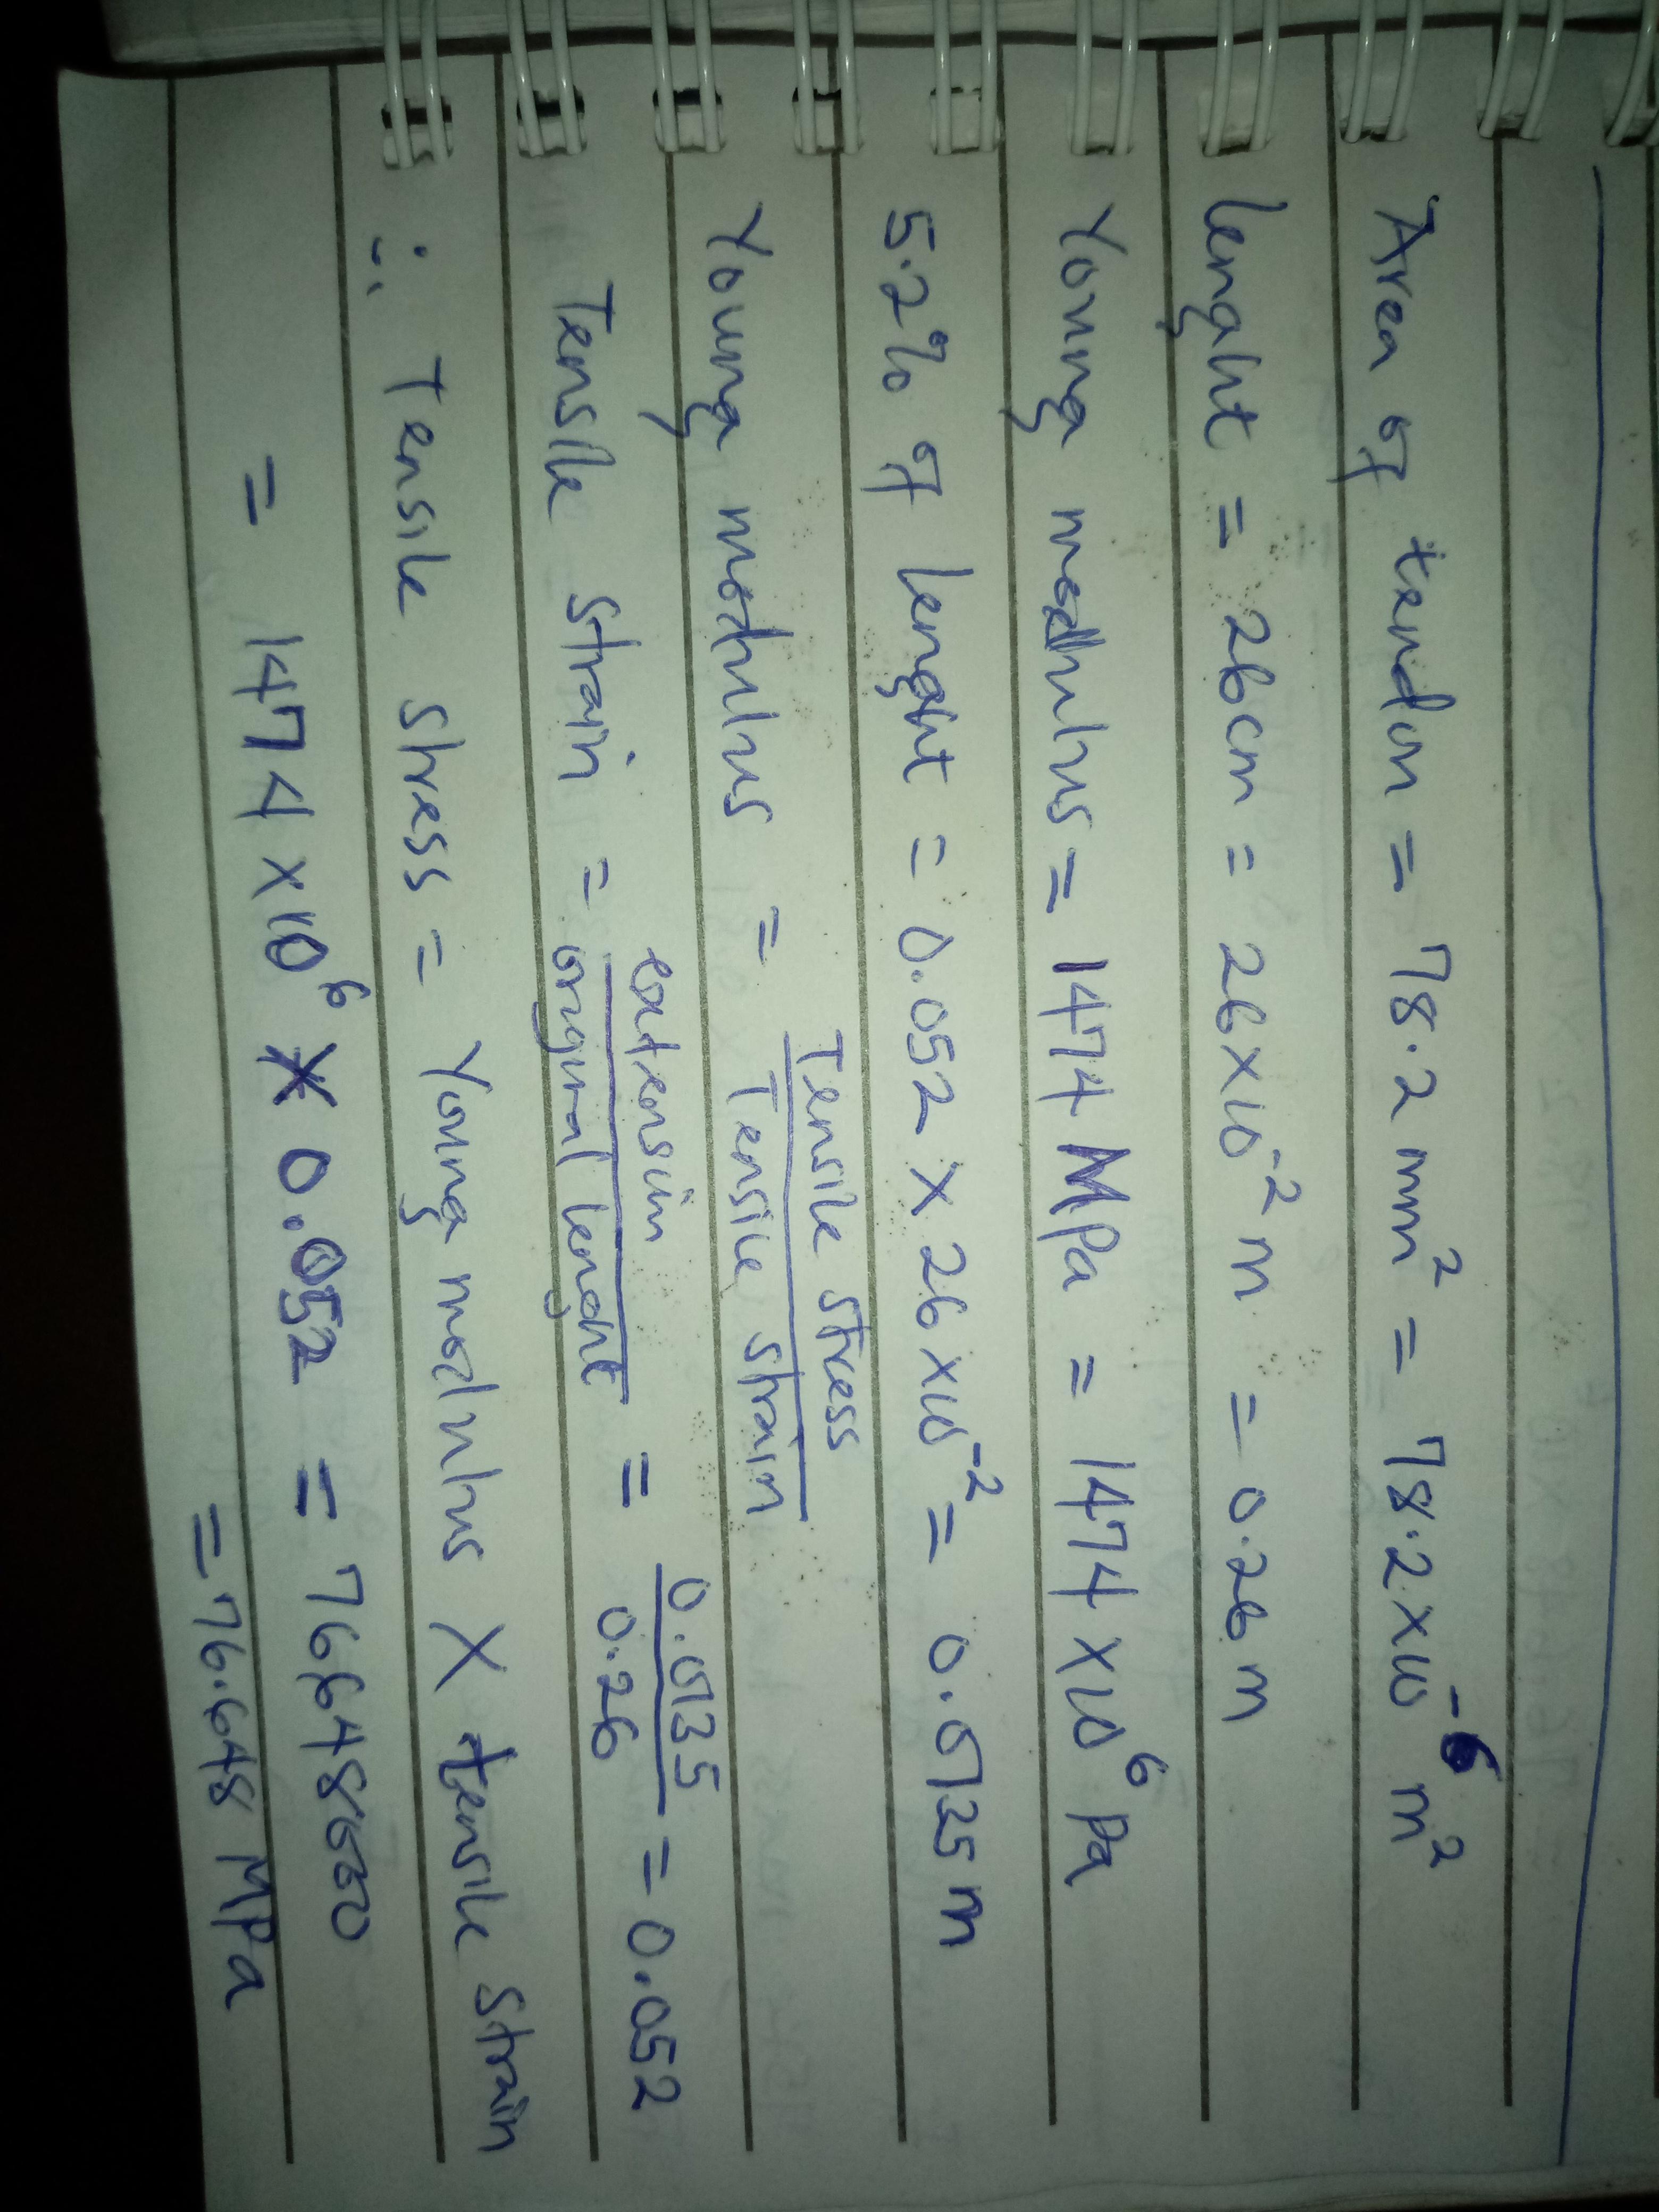 Area of tendon = 78.2 mm² = 78.2 x 10⁻⁶ m²
lenght = 26cm = 26 x 10⁻² m = 0.26 m
Young modulus = 1474 MPa = 1474 x 10⁶ Pa
5.2% of lenght = 0.052 x 26 x 10⁻² = 0.0135 m
Young modulus = Tensile stress / Tensile strain
Tensile strain = extension / original lenght = 0.0135 / 0.26 = 0.052
∴ Tensile stress = Young modulus X tensile strain
= 1474 x 10⁶ X 0.052 = 76648000
= 76.648 MPa